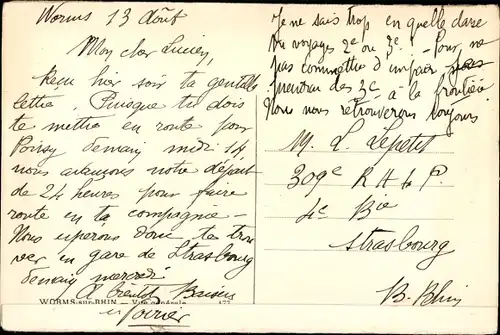 Worms 13 Août
Mon cher Lucien,
Reçu hier soir ta gentille
lettre. Puisque tu dois
te mettre en route pour
demain midi 14,
nous avançons notre départ
de 24 heures pour faire
route en ta compagnie -
Nous espérons donc te trou
ver en gare de Strasbourg
demain mercredi
A bientôt Baisers
WORMS-sur-RHIN - Vue générale
Je ne sais trop en quelle classe
tu voyages 2e ou 3e - Pour ne
pas commettre d'impair
prendrai des 3e à la frontière
Nous nous retrouverons toujours.
M. L. Lepetit
309e R A L P.
4e Bie
Strasbourg
B-Rhin